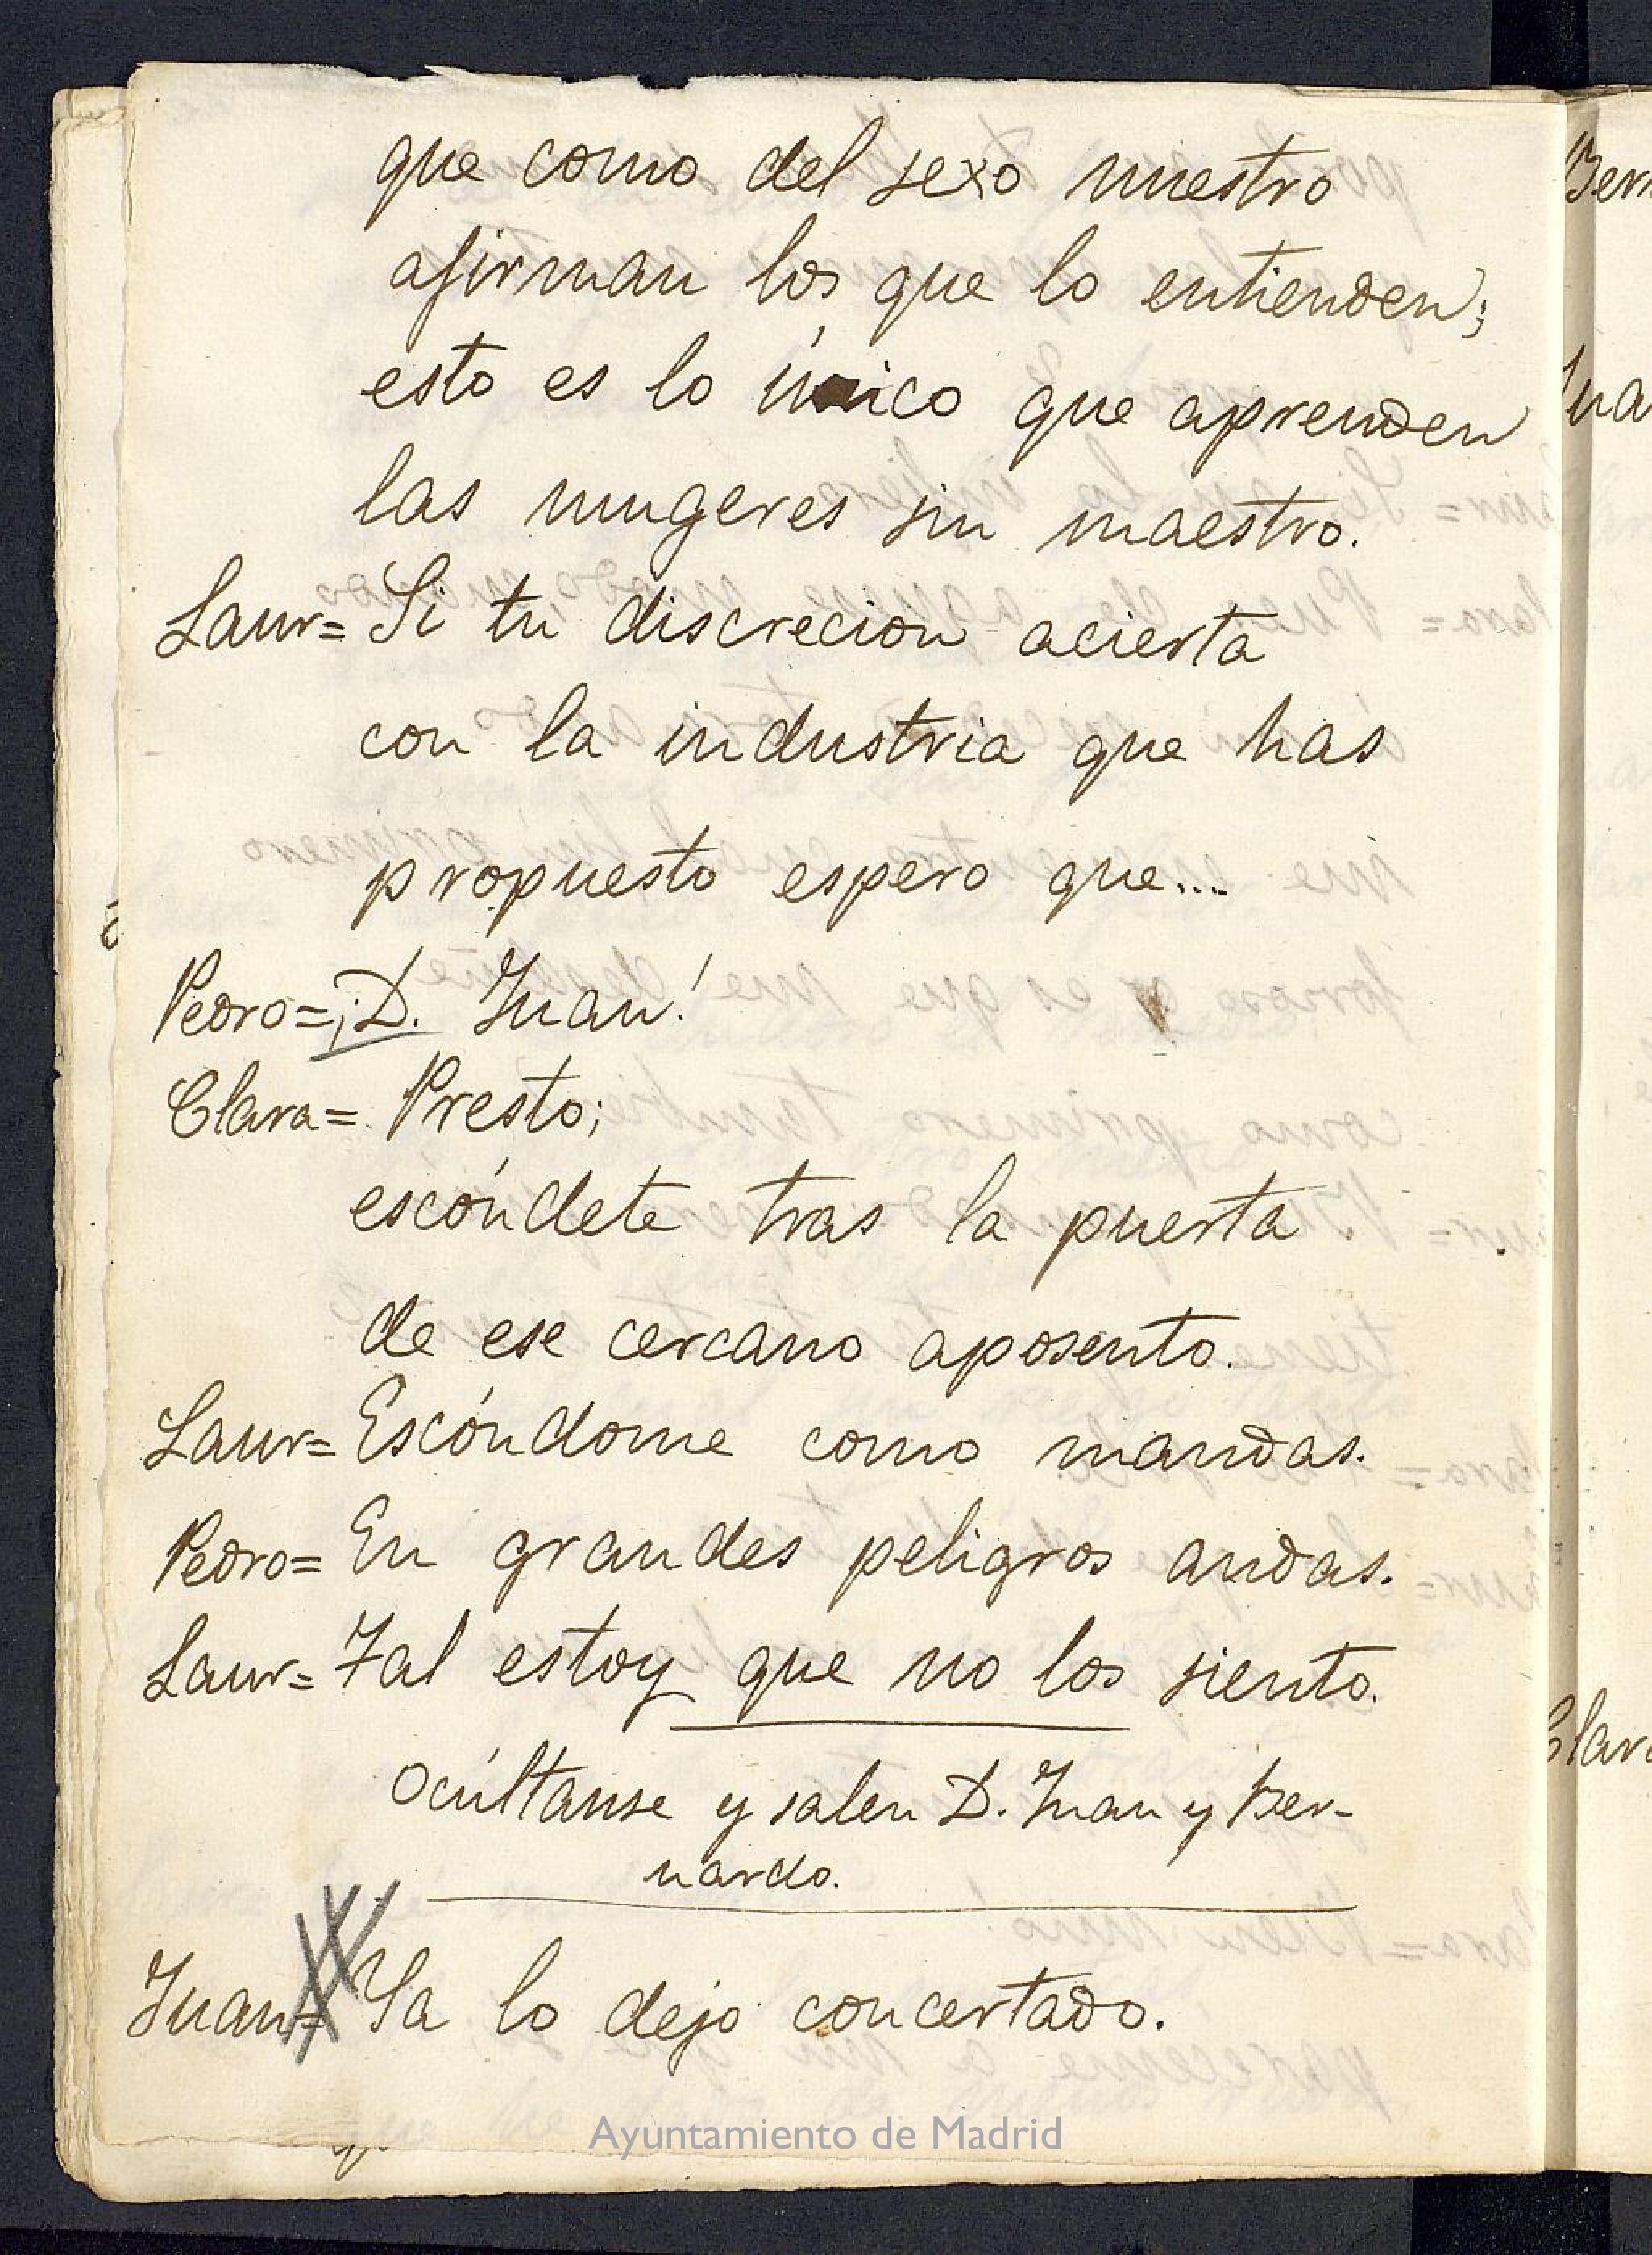 que como del sexo nuestro
afirman los que lo entienden;
esto es lo único que aprenden
las mugeres sin maestro.
Laur= Si tu discrecion acierta
con la industria que has
propuesto espero que....
Pedro= ¡D. Juan!
Clara= Presto;
escóndete tras la puerta
de ese cercano aposento.
Laur= Escóndome como mandas.
Pedro= En grandes peligros andas.
Laur= Tal estoy que no los siento.
Ocúltanse y salen D. Juan y Ber-
nardo.
Juan= Ya lo dejo concertado.
Ayuntamiento de Madrid